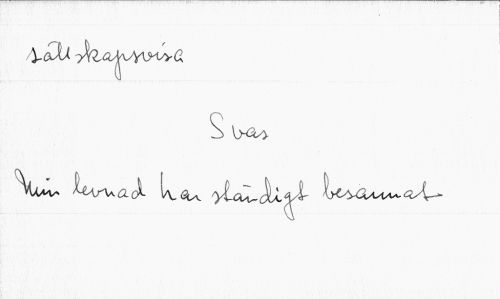 sällskapsvisa
Svar
Min levnad har ständigt besannat